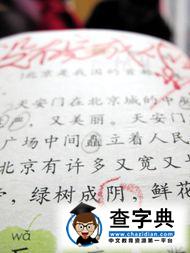 没有
北京是我国的首
天安门在北京城的中
又美丽。天安门
广场中间矗立着人民
北京有许多又宽又
，绿树成阴，鲜花
wǎ
查字典
www.chazidian.com
中文教育资源第一平台